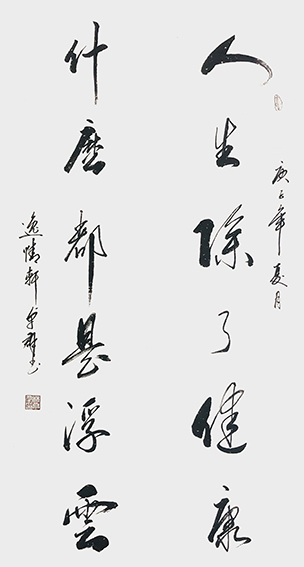 庚子年夏月
人生除了健康
什麼都是浮雲
逸情軒